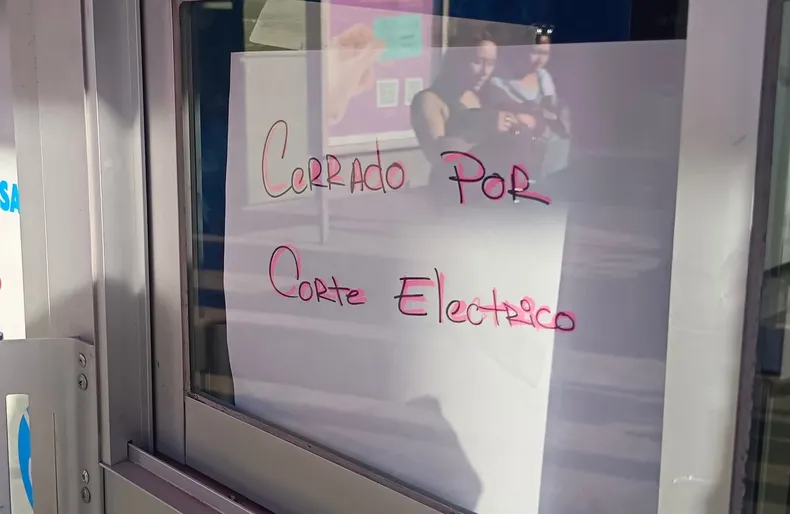 CeRRAdo PoR
CoRte ElectRico
SA